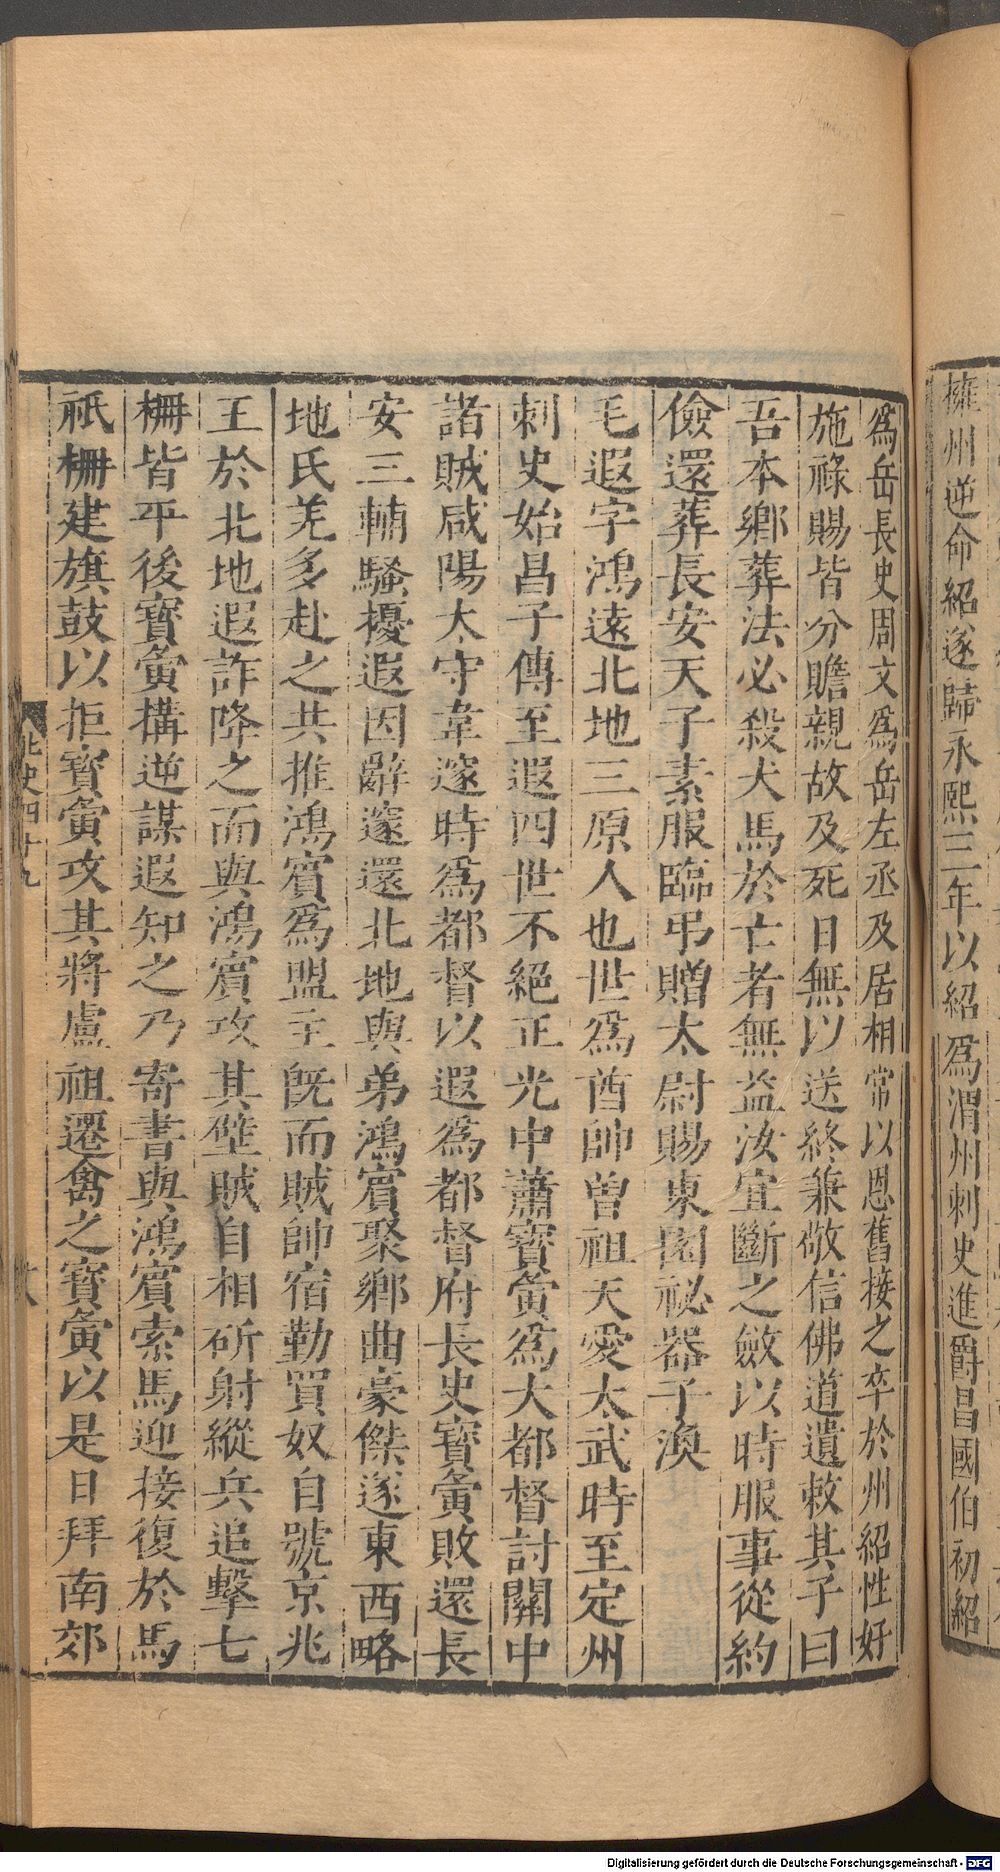 擁州逆命紹遂歸永熙三年以紹爲渭州刺史進爵昌國伯初紹
爲岳長史周文爲岳左丞及居相常以恩舊接之卒於州紹性好
施祿賜皆分贍親故及死日無以送終兼敬信佛道遺敕其子曰
吾本鄉葬法必殺犬馬於亡者無益汝宜斷之斂以時服事從約
儉還葬長安天子素服臨弔贈太尉賜東園祕器子渙
毛遐字鴻遠北地三原人也世爲酋帥曾祖天愛太武時至定州
刺史始昌子傳至遐四世不絕正光中蕭寶夤爲大都督討關中
諸賊咸陽太守韋邃時爲都督以遐爲都督府長史寶夤敗還長
安三輔騷擾遐因辭邃還北地與弟鴻賓聚鄉曲豪傑遂東西略
地氐羌多赴之共推鴻賓爲盟主旣而賊帥宿勤買奴自號京兆
王於北地遐詐降之而與鴻賓攻其壁賊自相斫射縱兵追擊七
柵皆平後寶夤構逆謀遐知之乃寄書與鴻賓索馬迎接復於馬
祇柵建旗鼓以拒寶夤攻其將盧祖遷禽之寶夤以是日拜南郊
北史四十九
十八
Digitalisierung gefördert durch die Deutsche Forschungsgemeinschaft - DFG